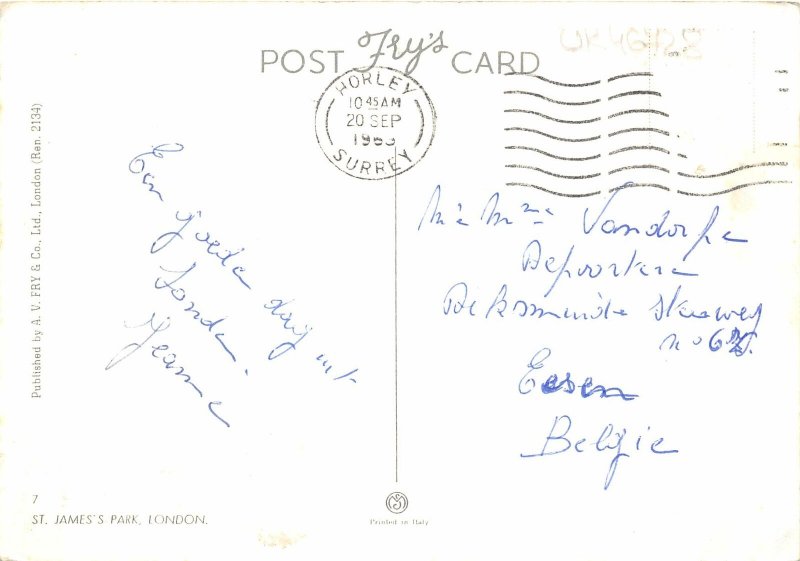 POST Fry's CARD
UK46128
HORLEY
10 45 AM
20 SEP
1963
SURREY
Published by A. V. FRY & Co., Ltd., London (Ren. 2134)
Een goede dag uit
Londen.
Jeanne
Mr & Mme Vandorpe
Depoortere
Diksmuidse Steenweg
no 6
Eesen
België
7
ST. JAMES'S PARK, LONDON.
Printed in Italy